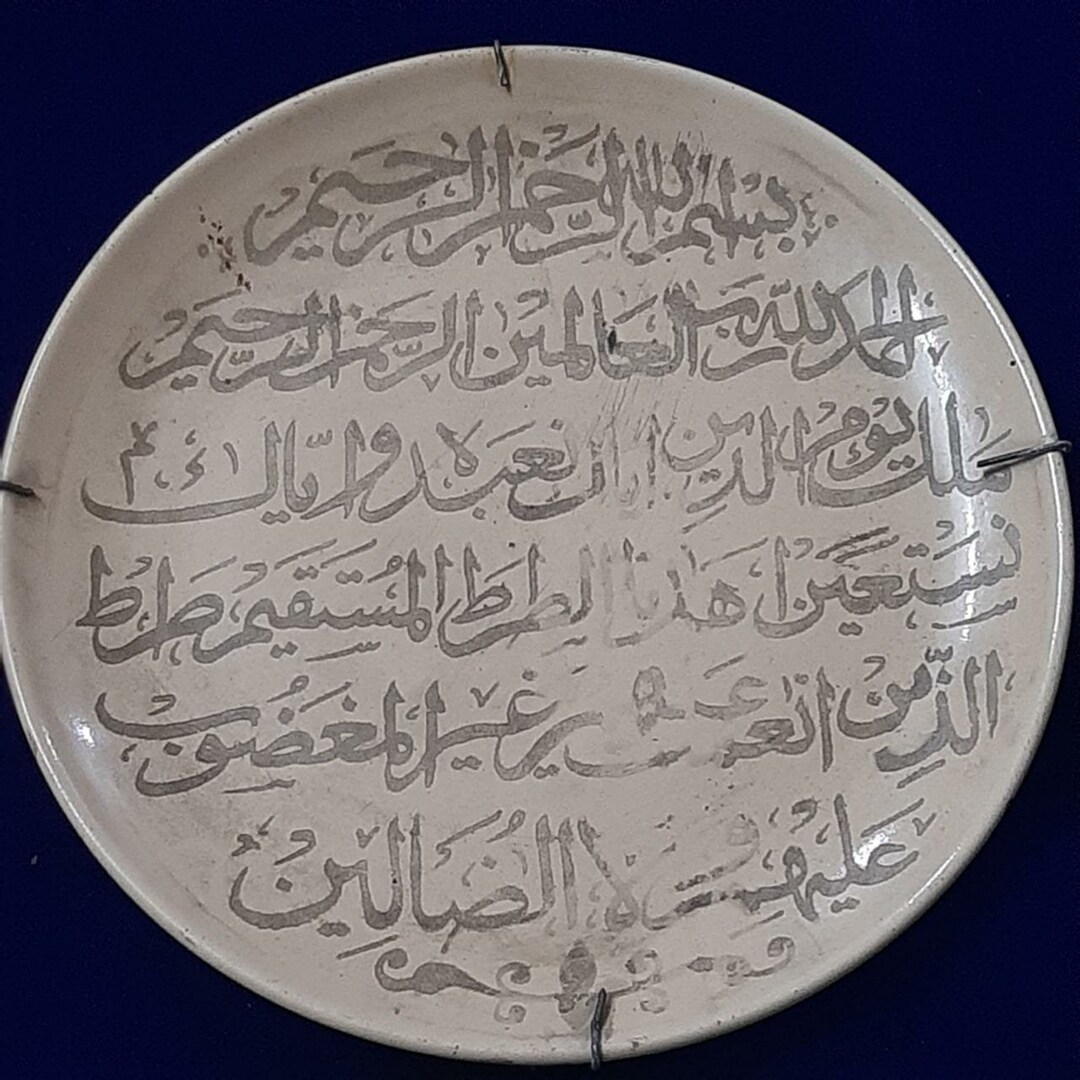 بسم الله الرحمن الرحيم
الحمد لله رب العالمين الرحمن الرحيم
ملك يوم الدين اياك نعبد واياك
نستعين اهدنا الصراط المستقيم صراط
الذين انعمت عليهم غير المغضوب
عليهم ولا الضالين